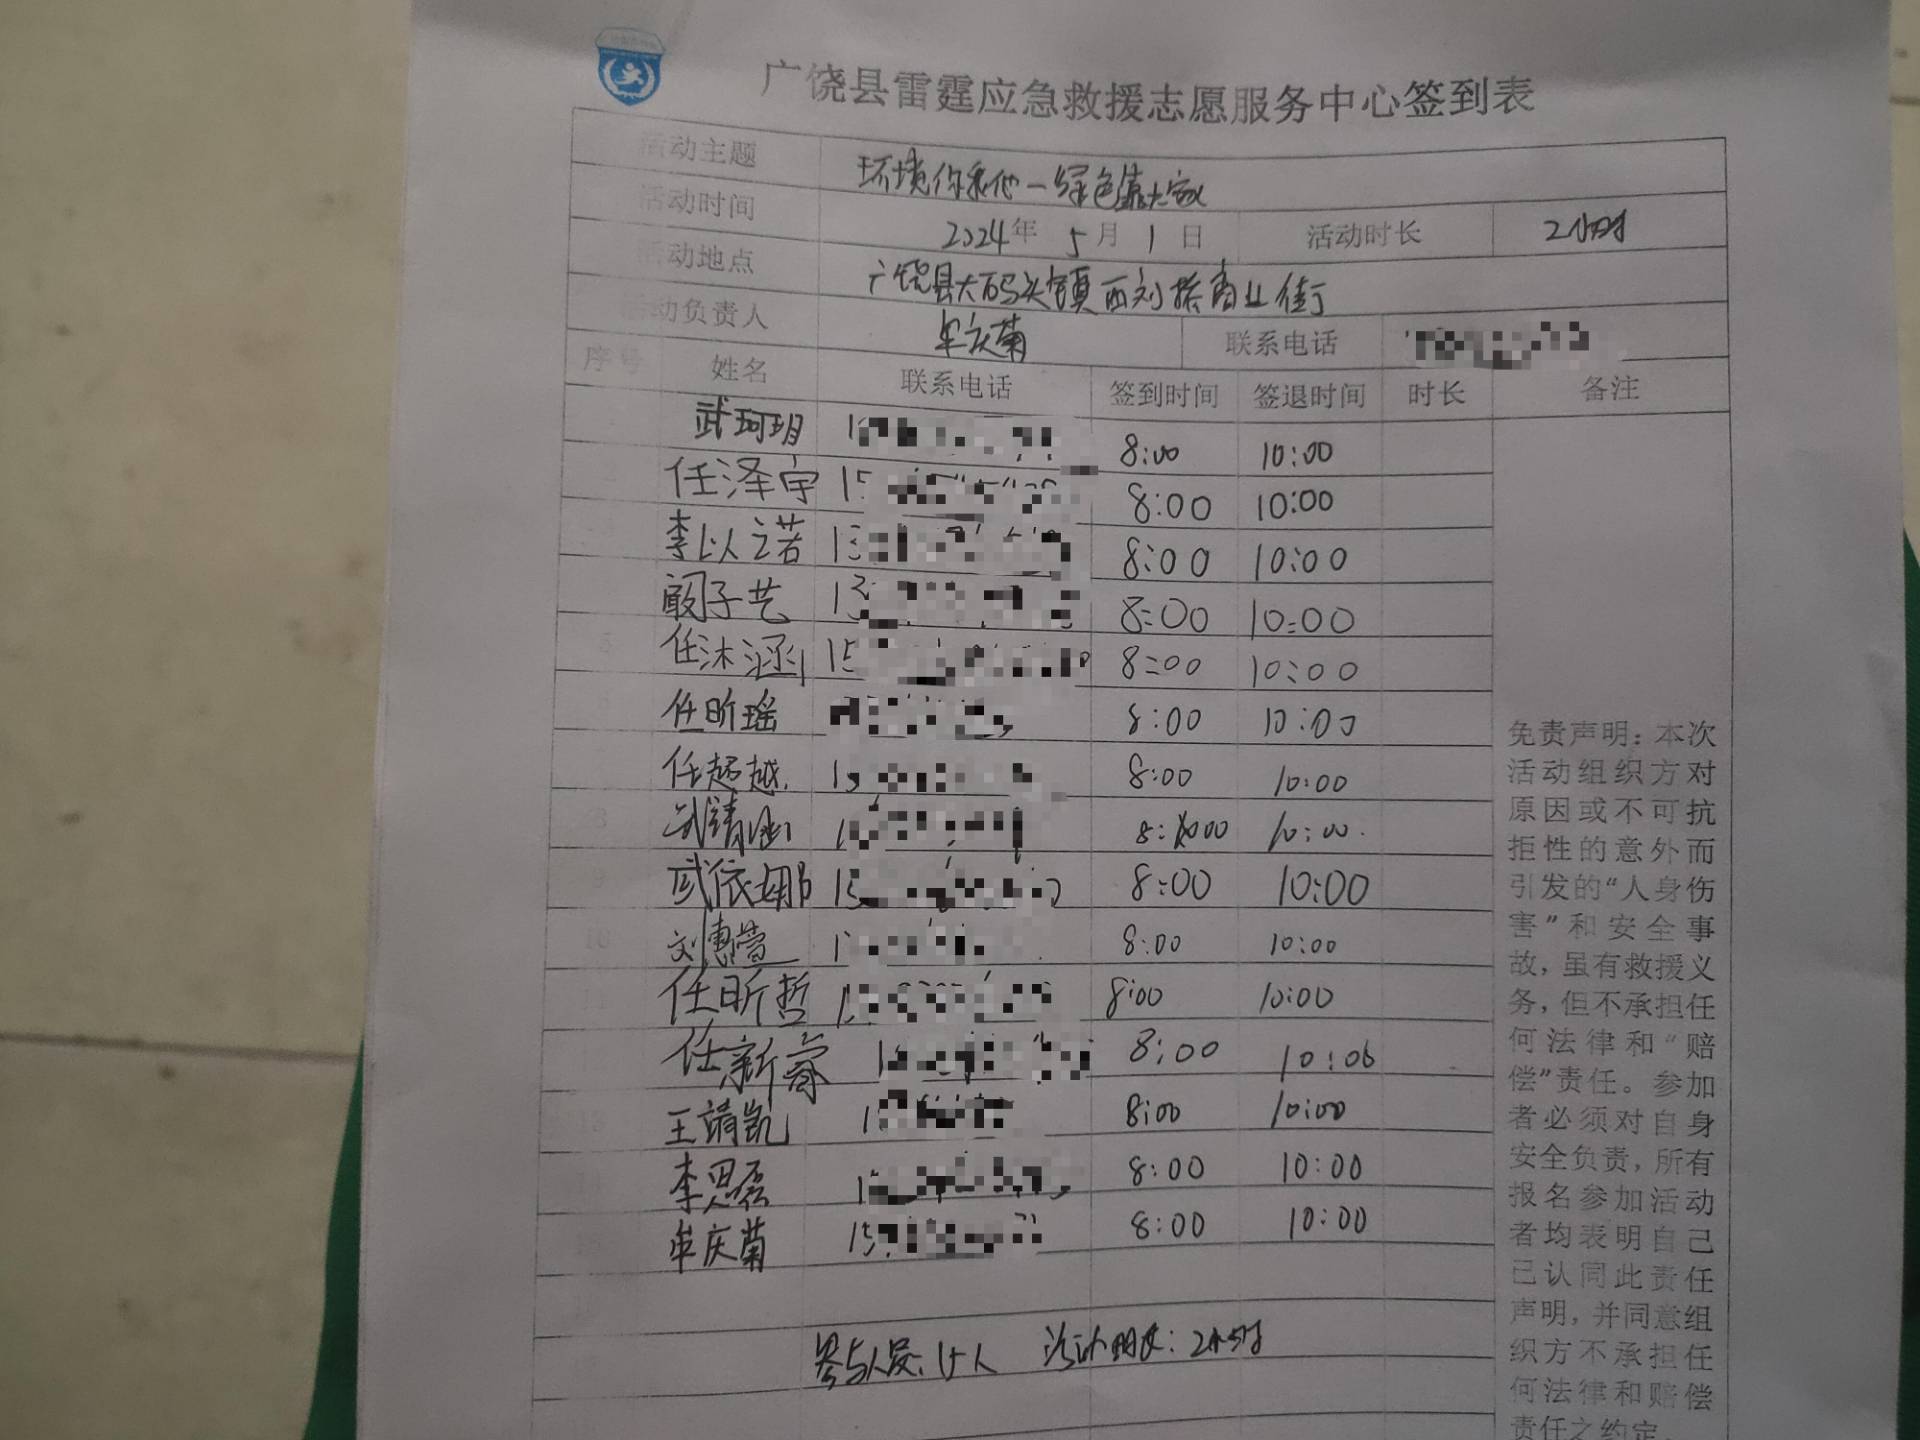 广饶县雷霆应急救援志愿服务中心签到表
活动主题 环境你我他一绿色靠大家
活动时间 2024年 5月 1日 活动时长 2小时
活动地点 广饶县大码头镇西刘桥商业街
活动负责人 牟庆菊 联系电话
序号 姓名 联系电话 签到时间 签退时间 时长 备注
武珂玥 8:00 10:00
任泽宇 15 8:00 10:00
李以诺 13 8:00 10:00
子艺 13 8:00 10:00
5 任沐涵 15 8:00 10:00
任昕瑶 8:00 10:00
任超越 8:00 10:00
8 武靖 8:00 10:00
9 武依娜 15 8:00 10:00
10 刘惠萱 8:00 10:00
11 任昕哲 8:00 10:00
任新睿 8:00 10:06
13 王靖凯 8:00 10:00
李思磊 8:00 10:00
牟庆菊 15 8:00 10:00
参与人员:15人 活动时长:2小时
免责声明:本次
活动组织方对
原因或不可抗
拒性的意外而
引发的“人身伤
害”和安全事
故,虽有救援义
务,但不承担任
何法律和“赔
偿”责任。参加
者必须对自身
安全负责,所有
报名参加活动
者均表明自己
已认同此责任
声明,并同意组
织方不承担任
何法律和赔偿
责任之约定